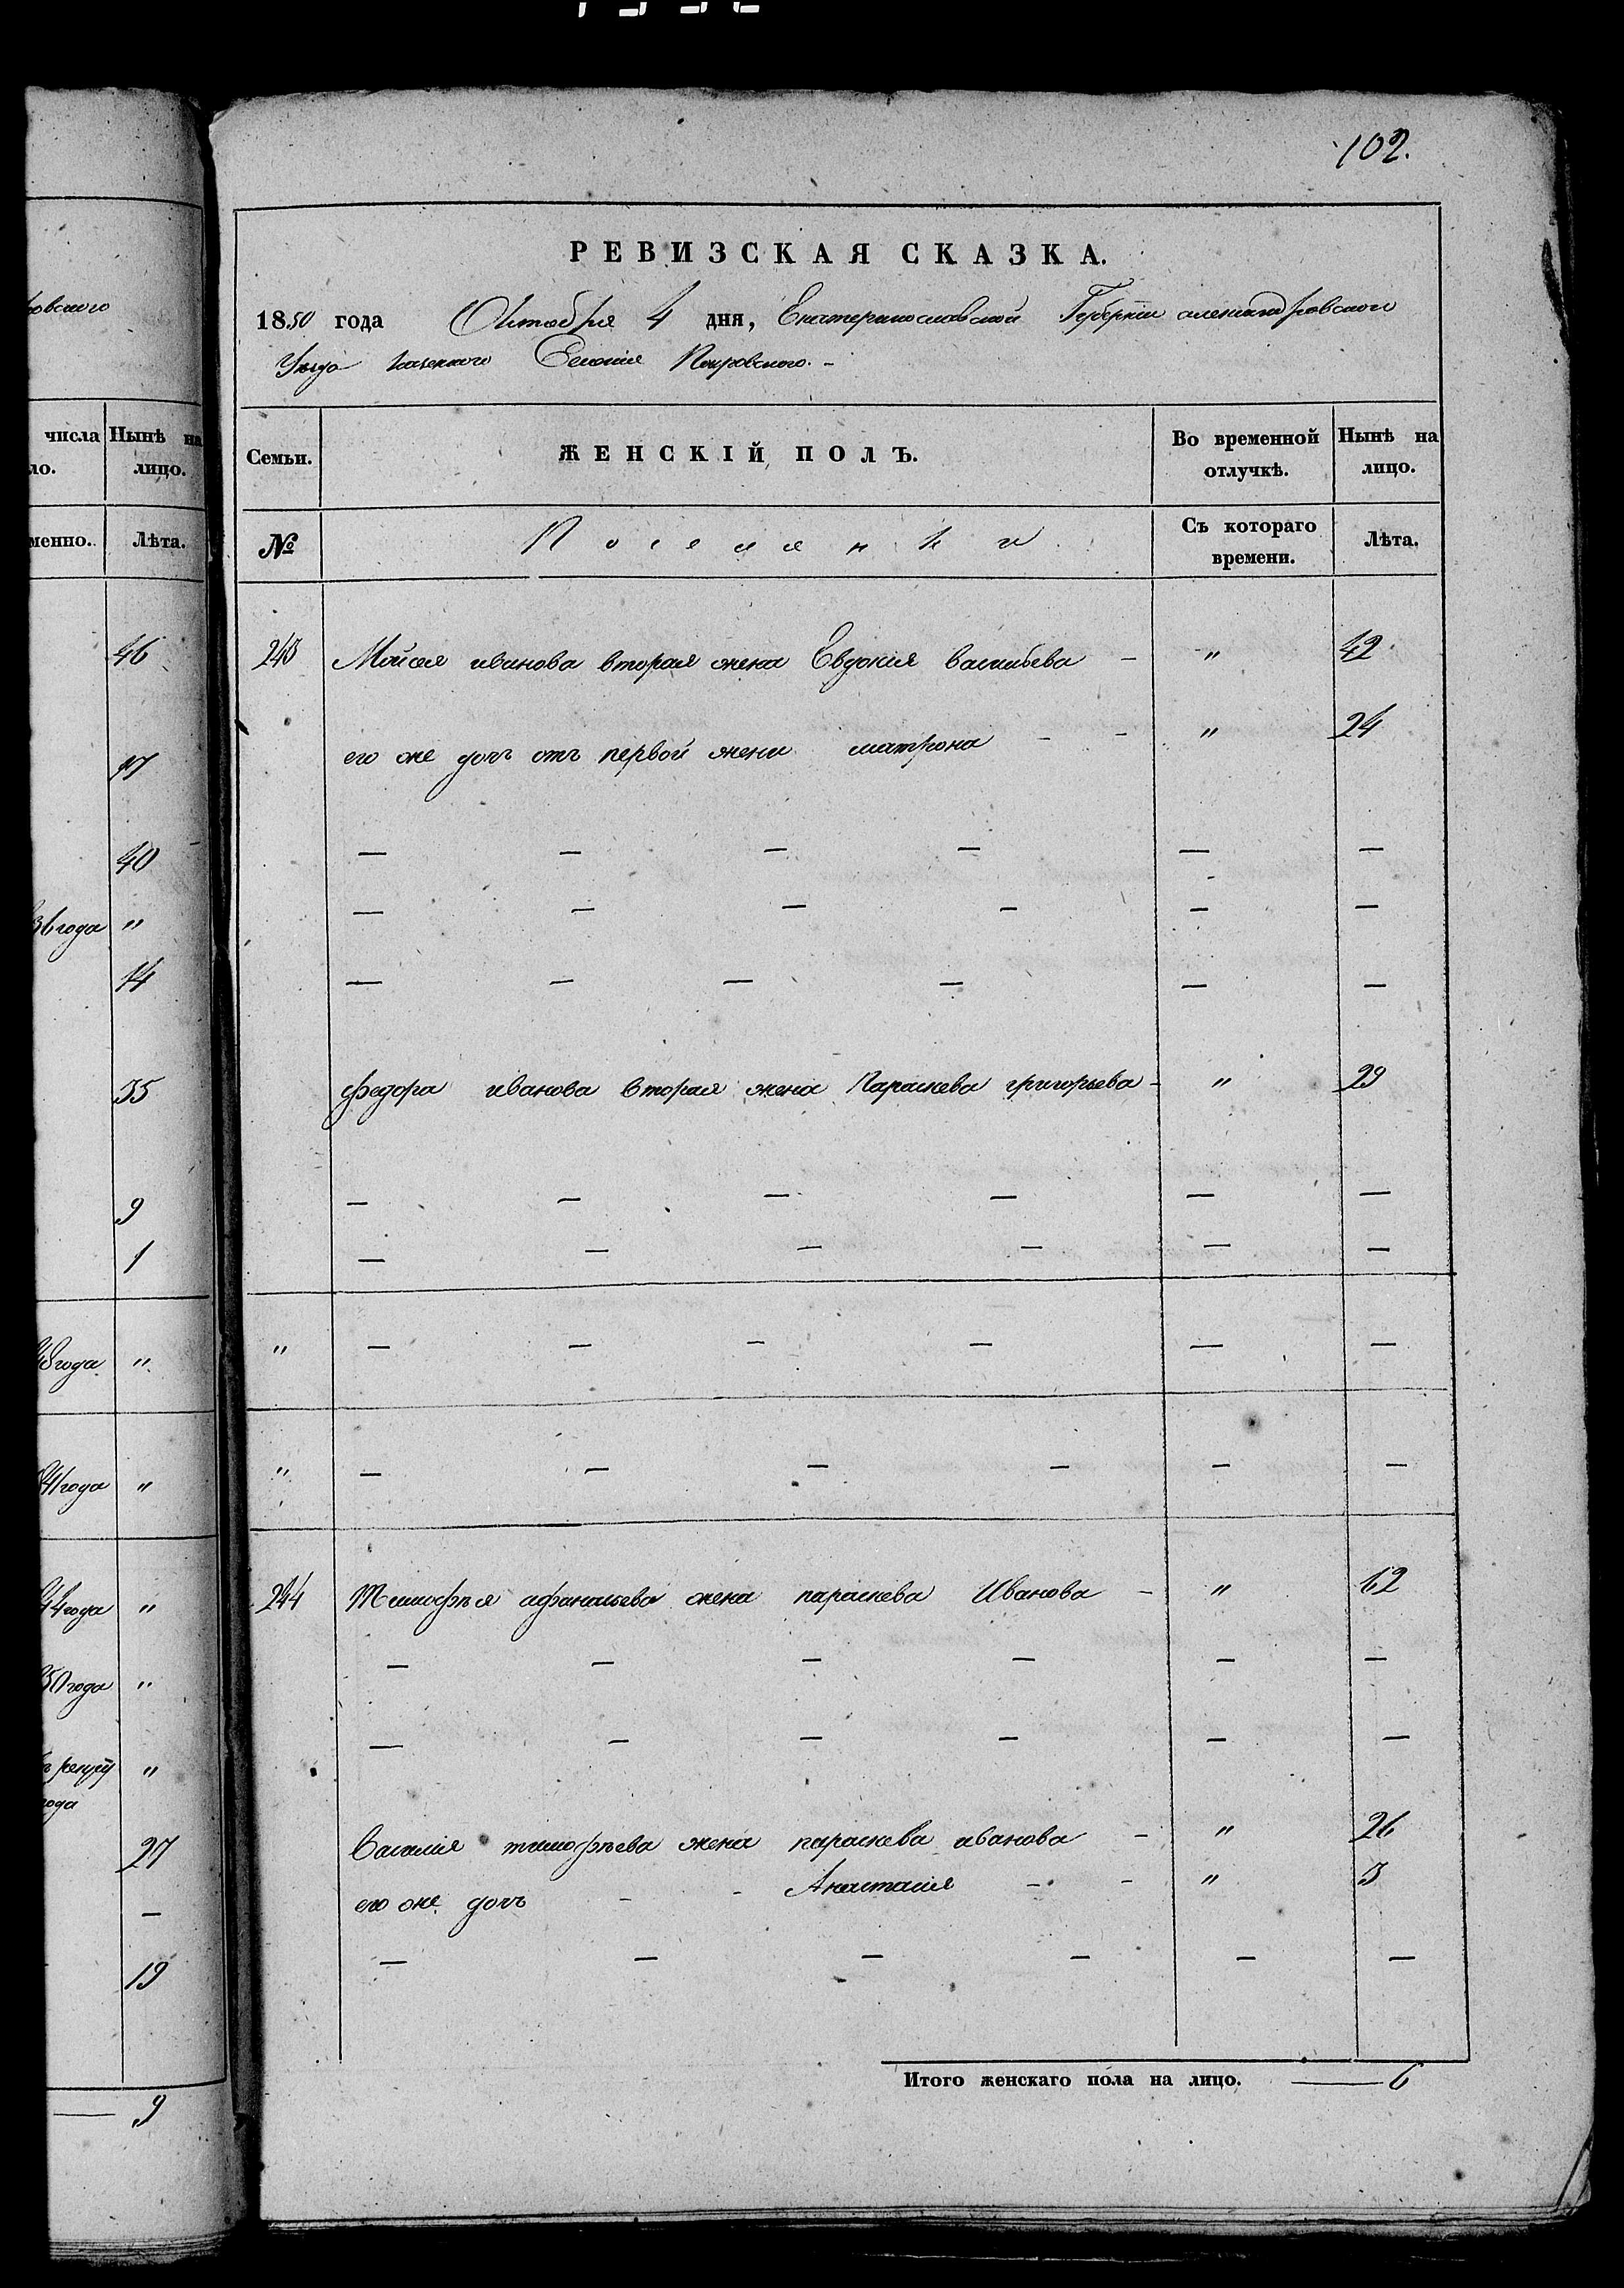 102.
РЕВИЗСКАЯ СКАЗКА.
1850 года Октября 4 дня, Екатеринославской Губернiи александровского
Уезда казенного Селения Покровского. -
Семьи.
ЖЕНСКІЙ ПОЛЪ.
Во временной отлучкѣ.
Нынѣ на лицо.
№
Поселянки
Съ котораго времени.
Лѣта.
243 Мойсея иванова вторая жена Евдокия васильева - " 42
его же дочь отъ первой жени матрона - - " 24
— — — — — —
— — — — — —
— — — — — —
федора иванова вторая жена Параскева григорьева - " 29
— — — — — —
— — — — — —
" — — — — — —
" — — — — — —
244 Тимофея афанасьева жена параскева Иванова - " 62
— — — — — —
— — — — — —
Василия тимофѣева жена параскева иванова - " 26
его же дочь - - Анастасия - - " 3
— — — — — —
Итого женскаго пола на лицо. — 6
ровского
числа
ло.
Нынѣ на
лицо.
менно.
Лѣта.
46
17
40
36 года "
14
35
9
1
48 года "
41 года "
44 года "
50 года "
"
года
27
—
19
— 9